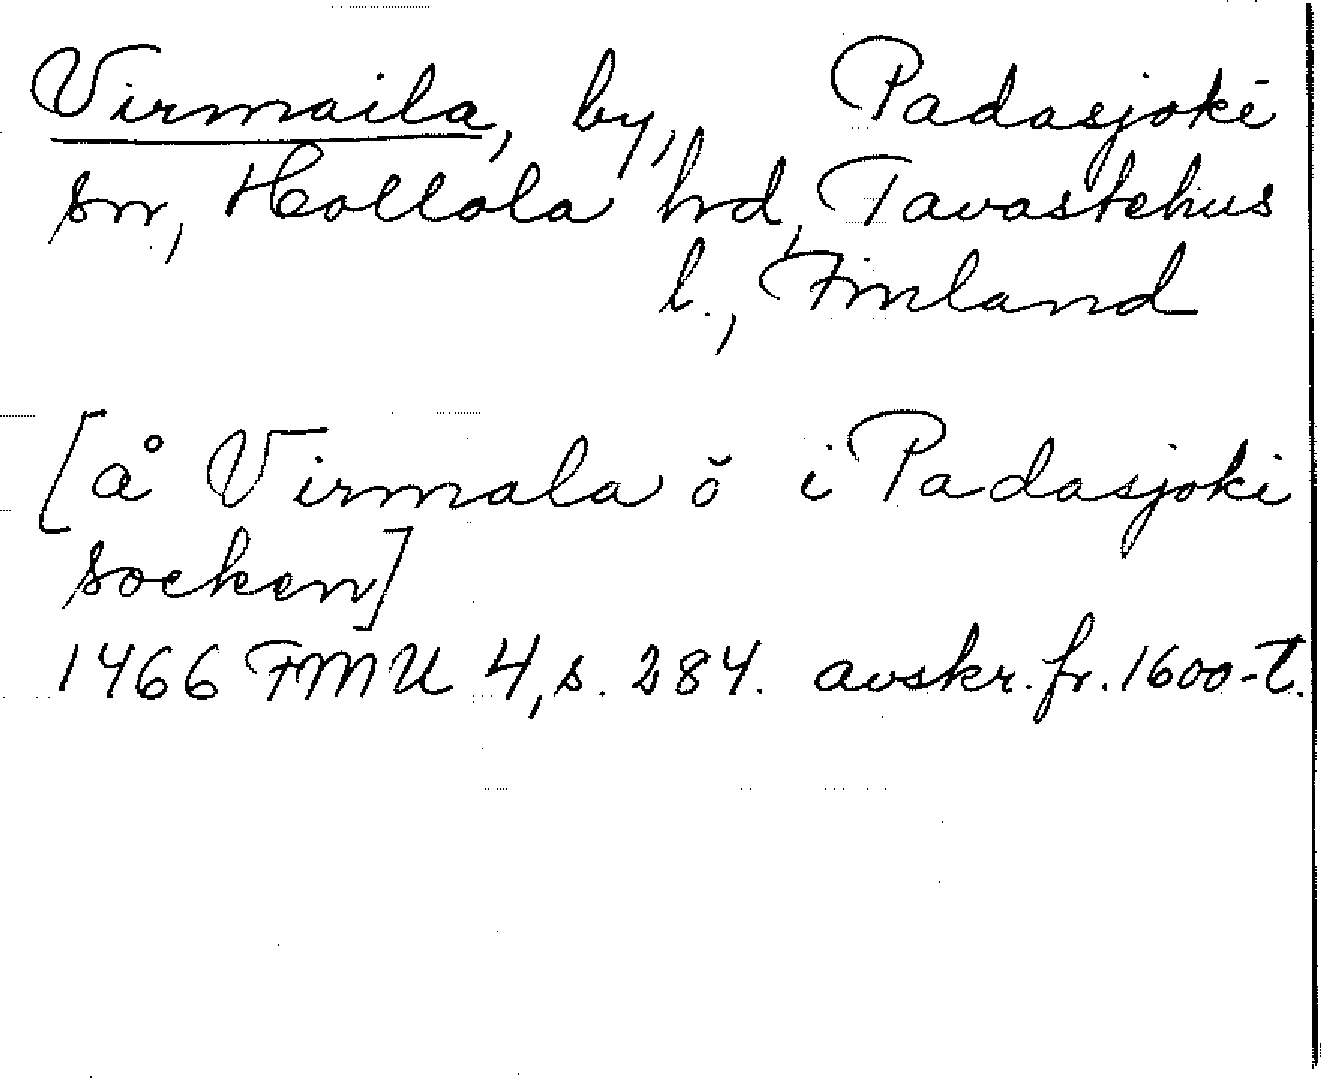 Virmaila, by, Padasjoki
sn, Hollola hrd, Tavastehus
l., Finland
[å Virmala ö i Padasjoki
socken]
1466 FMU 4, s. 284. avskr. fr. 1600-t.